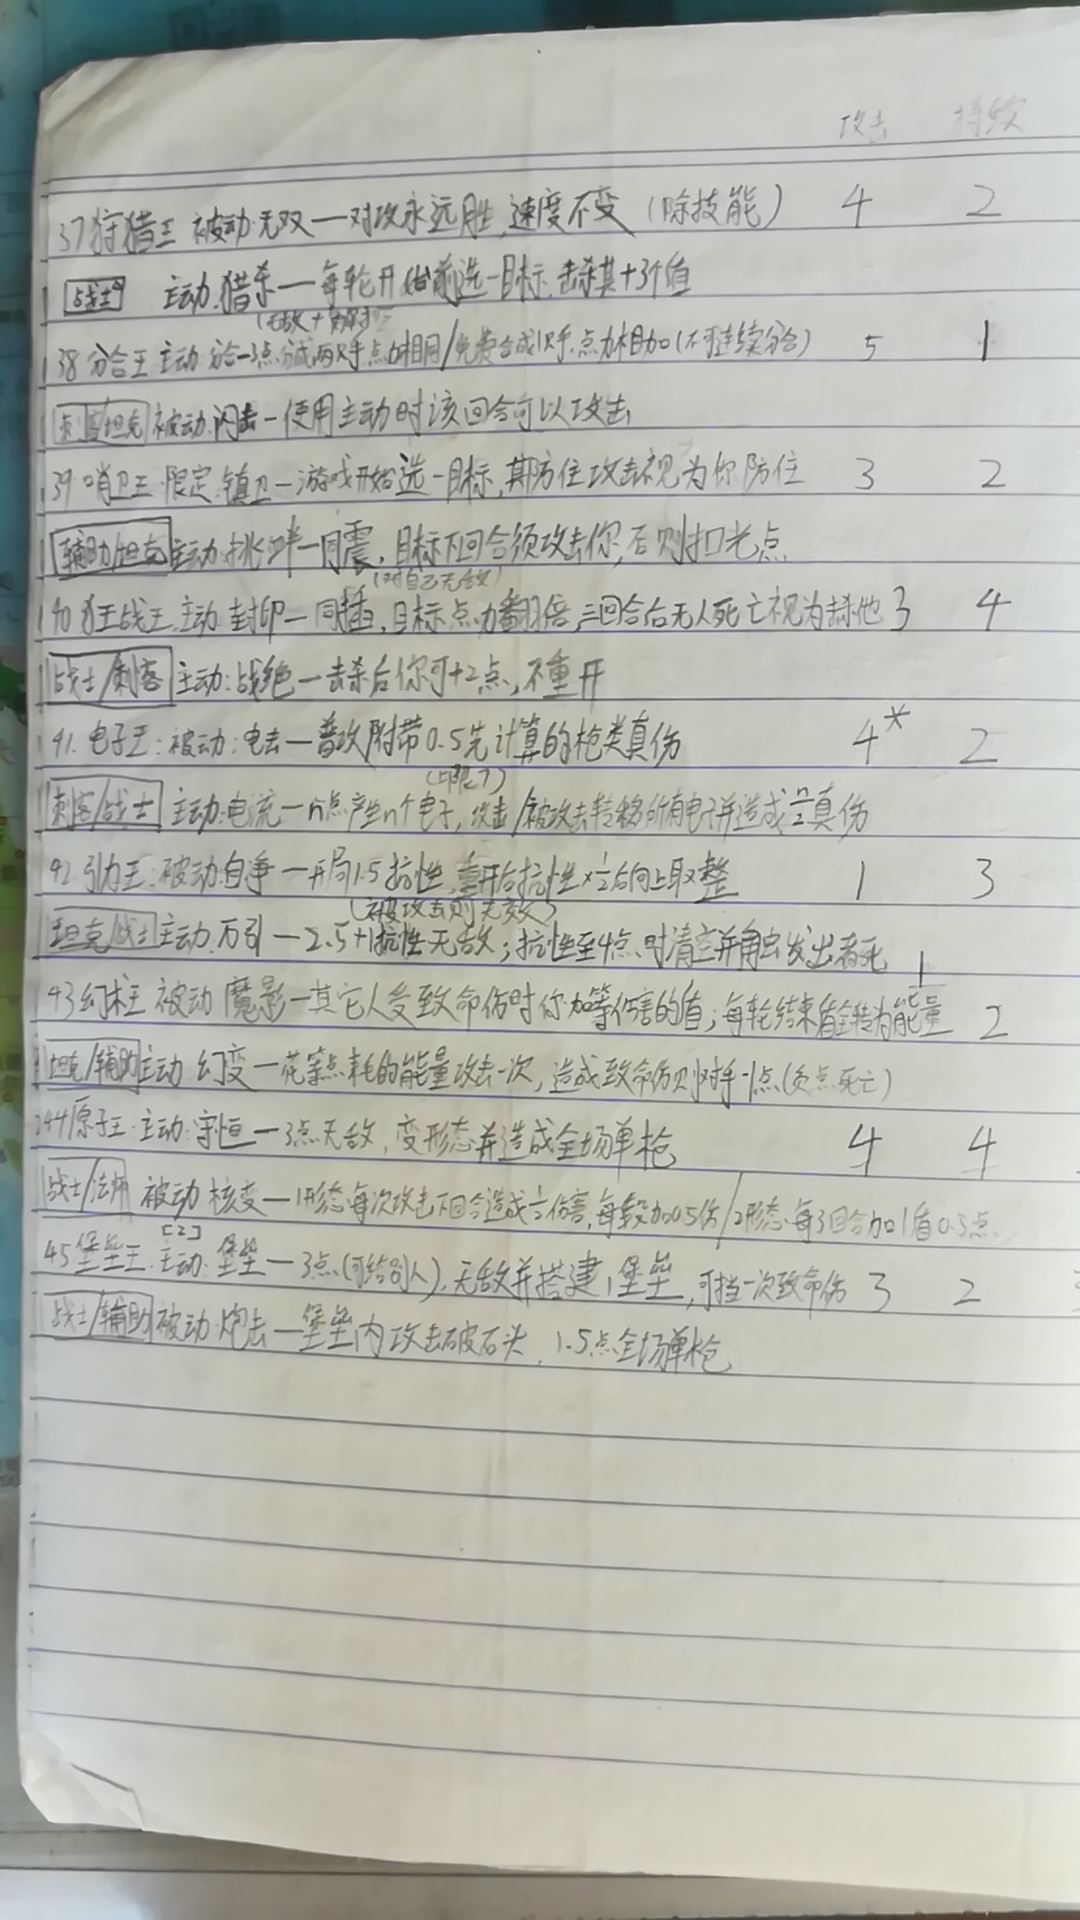 攻击 持续
37狩猎王 被动:无双—对攻永远胜,速度不变(除技能) 4 2
战士 主动:猎杀—每轮开始前选一目标,击杀其+3个值
38分合王 主动:分合—3点分成两只手点力相同/免费合成1只手,点力相加(不可连续分合) 5 1
刺客/坦克 被动:闪击—使用主动时该回合可以攻击
39.哨卫王 限定:镇卫—游戏开始选一目标,其防住攻击视为你防住 3 2
辅助/坦克 主动:挑衅—同震,目标下回合须攻击你,否则扣光点
(对自己无敌)
40 战王 主动:封印—同插,目标点力翻倍,三回合后无人死亡视为击杀他 3 4
战士/刺客 主动:战绝—击杀后你可+2点,不重开
41.电子王:被动:电击—普攻附带0.5先计算的枪类真伤 4* 2
(上限7)
刺客/战士 主动:电流—n点产生n个电子,攻击/被攻击转移所有电子并造成n/2真伤
42引力王:被动:自净—开局1.5抗性,重开后抗性×1/2后向上取整 1 3
(被攻击则无效)
坦克/战士 主动:万引—2.5+1抗性无敌;抗性至4点时清空并触发发出者死
43幻 王 被动 魔影—其它人受致命伤时你加等伤害的值;每轮结束 转为能量 1 2
坦克/辅助 主动 幻变—花等点耗的能量攻击一次,造成致命伤则对手-1点(负点死亡)
44原子王:主动:宇恒—3点无敌,变形态并造成全场单枪 4 4
战士/法师 被动 核变—1形态:每次攻击下回合造成1/2伤害,每 加0.5伤/2形态:每3回合加1盾0.5点
[2]
45堡垒王:主动:堡垒—3点(可给别人),无敌并搭建1堡垒,可挡一次致命伤 3 2
战士/辅助 被动:炮击—堡垒内攻击破石头,1.5点全场单枪